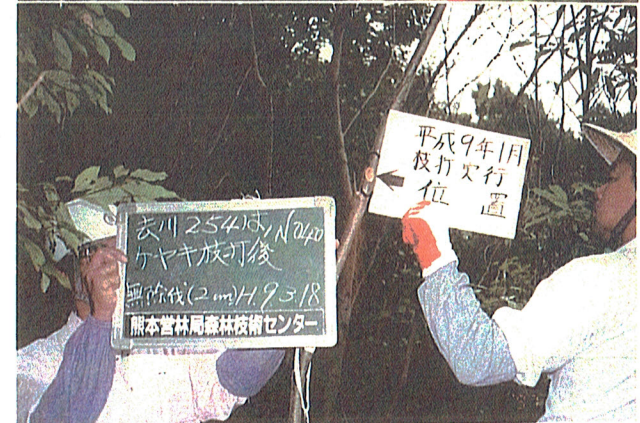 去川254は, No40
ケヤキ枝打後
無除伐(2m)H.9.3.18
熊本営林局森林技術センター
平成9年1月
枝打実行
位置